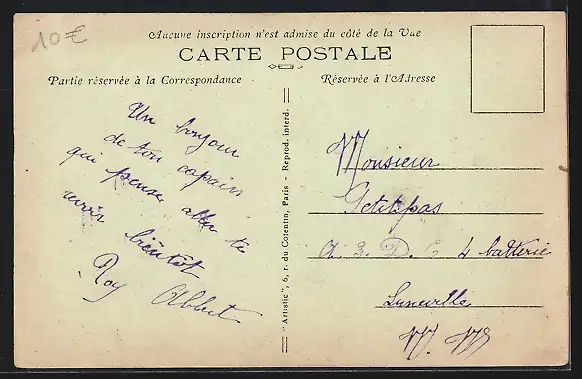 10€
Aucune inscription n'est admise du côté de la Vue
CARTE POSTALE
Partie réservée à la Correspondance
Réservée à l'Adresse
Un bonjour
de ton copain
qui pense aller te
revoir bientôt
Roy Albert
"Artistic", 6, r. du Cotentin, Paris - Reprod. interd.
Monsieur
Petitpas
A 3 D. 4 batterie
Luneville
M. M